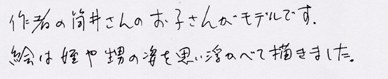 作者の筒井さんのお子さんがモデルです.
絵は姪や甥の姿を思い浮かべて描きました。